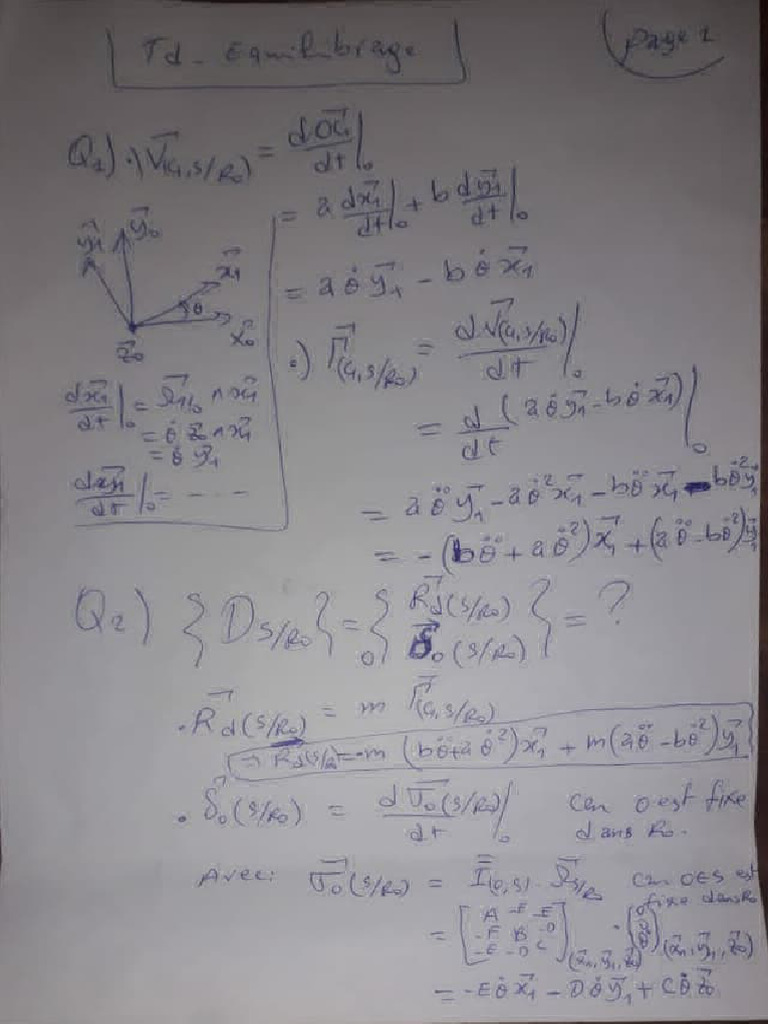 Td - Equilibrage
page 1
Q1) •) V⃗(G,S/R0) = dOG⃗/dt|0
= a dx⃗1/dt|0 + b dy⃗1/dt|0
= a θ̇ y⃗1 - b θ̇ x⃗1
y⃗1 y⃗0 x⃗1 θ x⃗0 z⃗0
dx⃗1/dt|0 = Ω⃗1/0 ∧ x⃗1
= θ̇ z⃗0 ∧ x⃗1
= θ̇ y⃗1
dy⃗1/dt|0 = - - - -
•) Γ⃗(G,S/R0) = dV⃗(G,S/R0)/dt|0
= d/dt (a θ̇ y⃗1 - b θ̇ x⃗1)|0
= a θ̈ y⃗1 - a θ̇² x⃗1 - b θ̈ x⃗1 - b θ̇² y⃗1
= -(b θ̈ + a θ̇²) x⃗1 + (a θ̈ - b θ̇²) y⃗1
Q2) {D S/R0} = 0{ R⃗d(S/R0) δ⃗0(S/R0) } = ?
• R⃗d(S/R0) = m Γ⃗(G,S/R0)
⇒ R⃗d(S/R0) = -m (b θ̈ + a θ̇²) x⃗1 + m(a θ̈ - b θ̇²) y⃗1
• δ⃗0(S/R0) = dσ⃗0(S/R0)/dt|0 car o est fixe
dans R0.
Avec: σ⃗0(S/R0) = I̿(O,S) . Ω⃗S/R0 car O∈S est
fixe dans R0
= [A -F -E; -F B -D; -E -D C](x⃗1,y⃗1,z⃗0) . (0; 0; θ̇)(x⃗1,y⃗1,z⃗0)
= -E θ̇ x⃗1 - D θ̇ y⃗1 + C θ̇ z⃗0